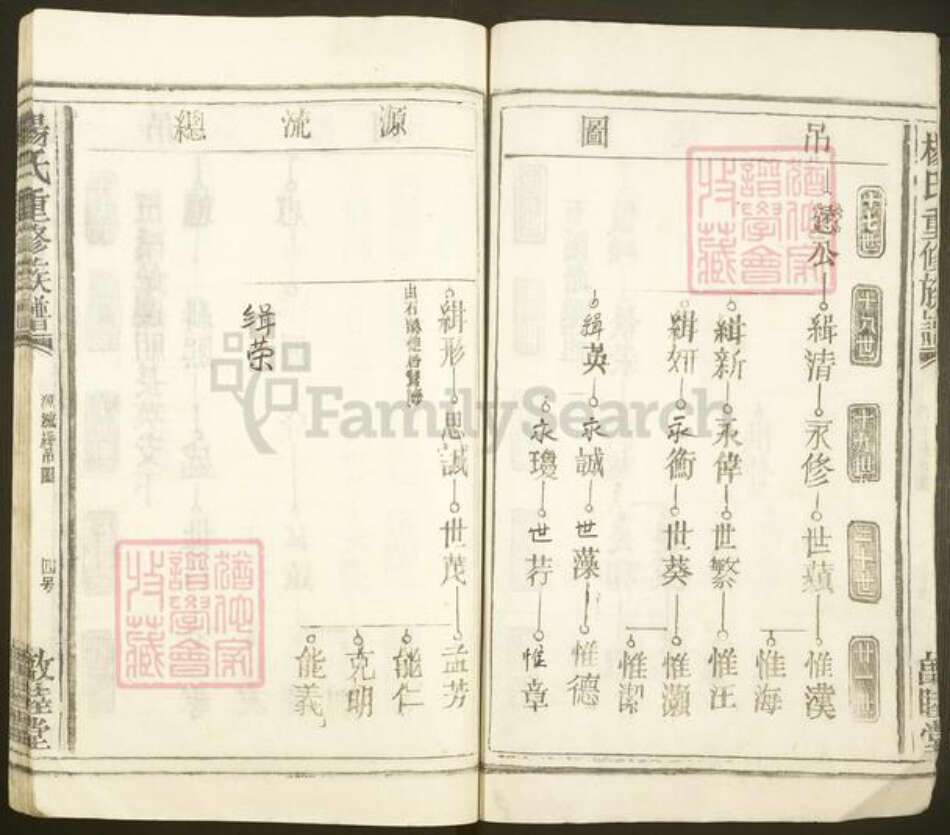 楊氏重修族譜
吊
圖
十七世
十八世
十九世
二十世
廿一世
公
緝清
永修
世蘋
惟漢
惟海
緝新
永偉
世繁
惟汪
緝妍
永衡
世葵
惟瀕
惟潔
緝英
永誠
世藻
惟德
永瓊
世荇
惟章
源流總
緝形
思誠
世茂
孟芳
能仁
克明
能義
缉荣
楊氏重修族譜
源流總吊圖
四号
敦睦堂
猶他家譜學會收藏
猶他家譜學會收藏
FamilySearch